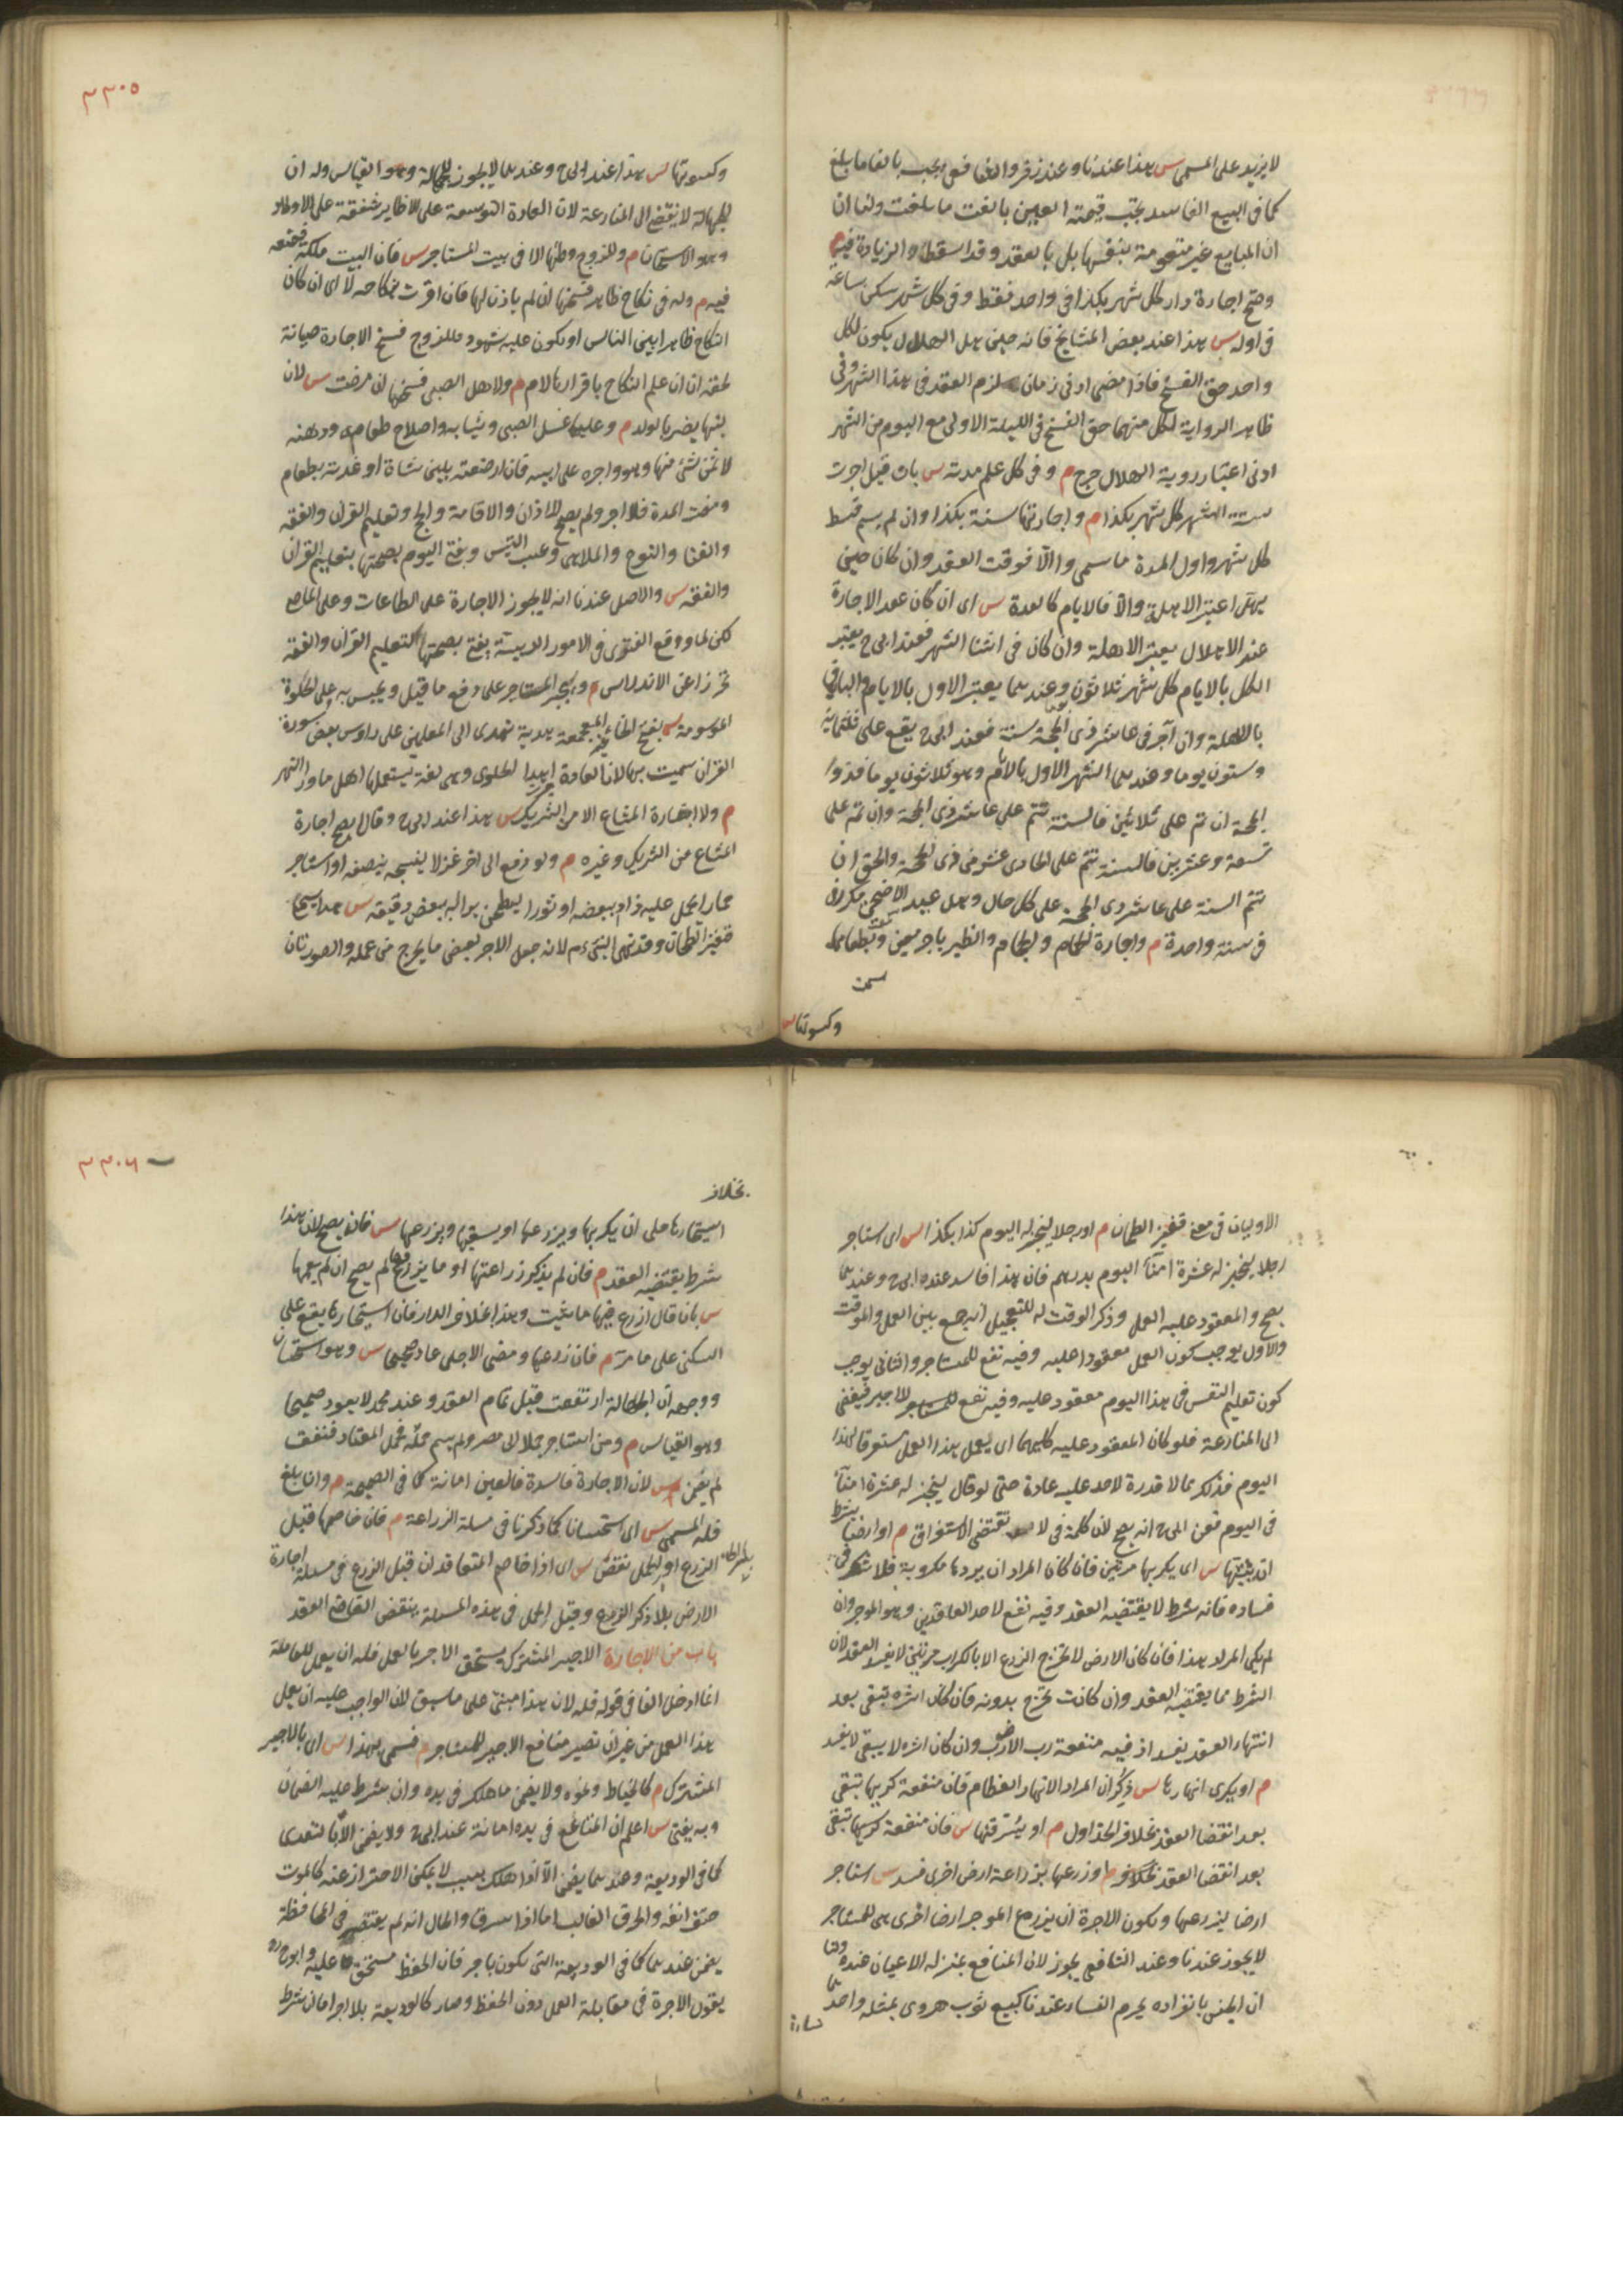 لا يزيد على المسمى س هذا عندنا وعند زفر والشافعى يجب بالغا ما بلغ
كما فى البيع الفاسد يجب قيمته العين بالغت ما بلغت ولنا ان
ان المبايع غير متقومة بنفسها بل بالعقد وقد اسقطا الزيادة فيه م
وصح اجارة دار كل شهر بكذا فى واحد فقط وفى كل شهر سكن ساعة
فى اوله س هذا عند بعض المشايخ فانه حين يهل الهلال يكون لكل
واحد حق الفسخ فاذا مضى ادنى زمان لزم العقد فى هذا الشهر وفى
ظاهر الرواية لكل منهما حق الفسخ فى الليلة الاولى مع اليوم من الشهر
ادنى اعتبار روية الهلال حرج م وفى كل علم مدته س بان قيل اجرت
ستة اشهر كل شهر بكذا م واجارتها سنة بكذا وان لم يسم قسط
كل شهر واول المدة ما سمى والّا فوقت العقد وان كان حين
يهلّ اعتبر الاهلة والّا فالايام كالعدة س اى ان كان عقد الاجارة
عند الاهلال يعتبر الاهلة وان كان فى اثنا الشهر فعند ابى ح يعتبر
الكل بالايام كل شهر ثلاثون وعندهما يعتبر الاول بالايام والباقى
بالاهلة وان آجر فى عاشر ذى الحجة سنة فعند ابى ح يقع على ثلثماية
وستون يوما وعندهما الشهر الاول بالايام وهو ثلاثون يوما فذو
الحجة ان تم على ثلاثين فالسنة تتم على عاشر ذى الحجة وان تم على
تسعة وعشرين فالسنة تتم على الحادى عشر من ذى الحجة والحق ان
تتم السنة على عاشر ذى الحجة على كل حال وهل عيد الاضحى مكررا
فى سنة واحدة م واجارة الحمام والحجام والظير باجر معين وبطعامها
وكسوتها س
وكسوتها س هذا عند ابى ح وعندهما لا يجوز للجهالة وهو القياس وله ان
الجهالة لا يفضى الى المنازعة لان العادة التوسعة على الاظاير شفقة على الاولاد
وهو الاستحسان م وللزوج وطئها لا فى بيت المستاجر س فان البيت ملكه فيمنعه
فيه م وله فى نكاح ظاهر فسخها ان لم ياذن لها فان اقرت بنكاحه لا اى ان كان
النكاح ظاهرا بين الناس او يكون عليه شهود فللزوج فسخ الاجارة صيانة
لحقه ان ان علم النكاح باقرارها لا م ولاهل الصبى فسخها ان مرضت س لان
لبنها يضر بالولد م وعليها غسل الصبى وثيابه واصلاح طعامه ودهنه
لا ثمن شئ منها وهو واجره على ابيه فان ارضعته بلبن شاة او غذته بطعام
ومضت المدة فلا اجر ولم يصح للاذان والاقامة والحج وتعليم القران والفقه
والغنا والنوح والملاهى وعسب التيس ويفتى اليوم بصحتها بتعليم القران
والفقه س والاصل عندنا انه لا يجوز الاجارة على الطاعات وعلى المعاصى
لكن لما وقع الفتوى فى الامور الدينية يفتى بصحتها لتعليم القران والفقه
تحرزا عن الاندراس م ويجبر المستاجر على دفع ما قيل ويحبس به على الحلوة
المرسومة س بفتح الحاء الغير المعجمعة هدية تهدى الى المعلمين على رؤس بعض سورة
القران سميت بها لان العادة اهدا الحلوى وهى لغة يستعملها اهل ماورا النهر
م ولا اجارة المشاع الا من الشريك س هذا عند ابى ح وقالا يصح اجارة
المشاع من الشريك وغيره م ولو دفع الى اخر غزلا ينسجه بنصفه او استاجر
حمارا يحمل عليه زاد ببعضه او ثورا ليطحن برا له ببعض دقيقه س هذا يسمى
قفيز الطحان وقد نهى النبى ءم لانه جعل الاجر بعض ما يخرج من عمله والصورتان
الاوليان فى معنى قفيز الطحان م او رجلا ليخبز له اليوم كذا بكذا س اى استاجر
رجلا ليخبز له عشرة امناء اليوم بدرهم فان هذا فاسد عنده ابى ح وعندهما
يصح والمعقود عليه العمل وذكر الوقت له للتعجيل انه جمع بين العمل والوقت
والاول يوجب كون العمل معقودا عليه وفيه نفع للمستاجر والثانى يوجب
كون تعليم النفس فى هذا اليوم معقود عليه وفيه نفع للاجير فيفضى
الى المنازعة فلو كان المعقود عليه كليهما اى يعمل هذا العمل مستغرقا لهذا
اليوم فذلك مما لا قدرة لاحد عليه عادة حتى لو قال ليخبز له عشرة امناء
فى اليوم فعن ابى ح انه يصح لان كلمة فى لا تقتضى الاستغراق م او ارضا بشرط
ان يثنيها س اى يكربها مرتين فان كان المراد ان يردها مكروبة فلا شك فى
فساده فانه شرط لا يقتضيه العقد وفيه نفع لاحد العاقدين وهو الموجر وان
لم يكن المراد هذا فان كان الارض لا تخرج الزرع الا بالكراب مرتين لا يفسد العقد لان
الشرط مما يقتضيه العقد وان كانت تخرج بدونه فان كان اثره تبقى بعد
انتهاء العقد يفسد اذ فيه منفعة رب الارض وان كان اثره لا يبقى لا يفسد
م او يكرى انهارها س ذكر ان المراد الانهار العظام فان منفعة كريها تبقى
بعد انقضا العقد بخلاف الجداول م او يسرقنها س فان منفعة تبقى
بعد انقضا العقد بخلاف م او زرعها بزراعة ارض اخرى فسد س استاجر
ارضا ليزرعها ويكون الاجرة ان يزرع الموجر ارضا اخرى هى للمستاجر
لا يجوز عندنا وعند الشافعى يجوز لان المنافع بمنزله الاعيان عنده ولنا
ان الجنس بانفراده يحرم النساء عندنا كبيع ثوب هروى بمثله واحدهما
بخلاف
استيجارها على ان يكربها ويزرعها او يسقيها ويزرعها س فانه يصح لان هذا
شرط يقتضيه العقد م فان لم يذكر زراعتها او ما يزرع فيها لم يصح ان لم يعمها
س بان قال ازرع فيها ما شيت وهذا بخلاف الدار فان استيجارها يقع على
السكنى على ما مرّ م فان زرعها ومضى الاجل عاد صحيحا س وهو استحسان
ووجهه ان الجهالة ارتفعت قبل تمام العقد وعند محمد لا يعود صحيحا
وهو القياس م ومن استاجر جملا الى مصر ولم يسم حمله فحمل المعتاد فنفق
لم يضمن س لان الاجارة فاسدة فالعين امانة كما فى الصحيحة م وان بلغ
فله المسمى س اى استحسانا كما ذكرنا فى مسلة الزراعة م فان خاصما قبل
الزرع او الحمل نقض س اى اذا خاصم المتعاقدان قبل الزرع فى مسلة اجارة
الارض بلا ذكر الزرع وقبل الحمل فى هذه المسلة ينقض القاضى العقد
باب من الاجارة الاجير المشترك يستحق الاجر بالعمل فله ان يعمل للعامة
انما ادخل الفا فى قوله فله لان هذا مبنىّ على ما سبق لان الواجب عليه ان يعمل
هذا العمل من غير ان تصير منافع الاجير للمستاجر م فسمى بهذا س اى بالاجير
المشترك م كالخياط ونحوه ولا يضمن ما هلك فى يده وان شرط عليه الضمان
وبه يفتى س اعلم ان المتاع فى يده امانة عند ابى ح ولا يضمن الا بالتعدى
كما فى الوديعة وعندهما يضمن الّا اذا هلك بسبب لا يمكن الاحتراز عنه كالموت
حتف انفه والحرق الغالب اما اذا سرق والحال انه لم يقصر فى المحافظة
يضمن عندهما كما فى الوديعة التى تكون باجر فان الحفظ مستحق عليه وابو ح ره
يقول الاجرة فى مقابلة العمل دون الحفظ وصار كالوديعة بلا اجر اما ان شرط